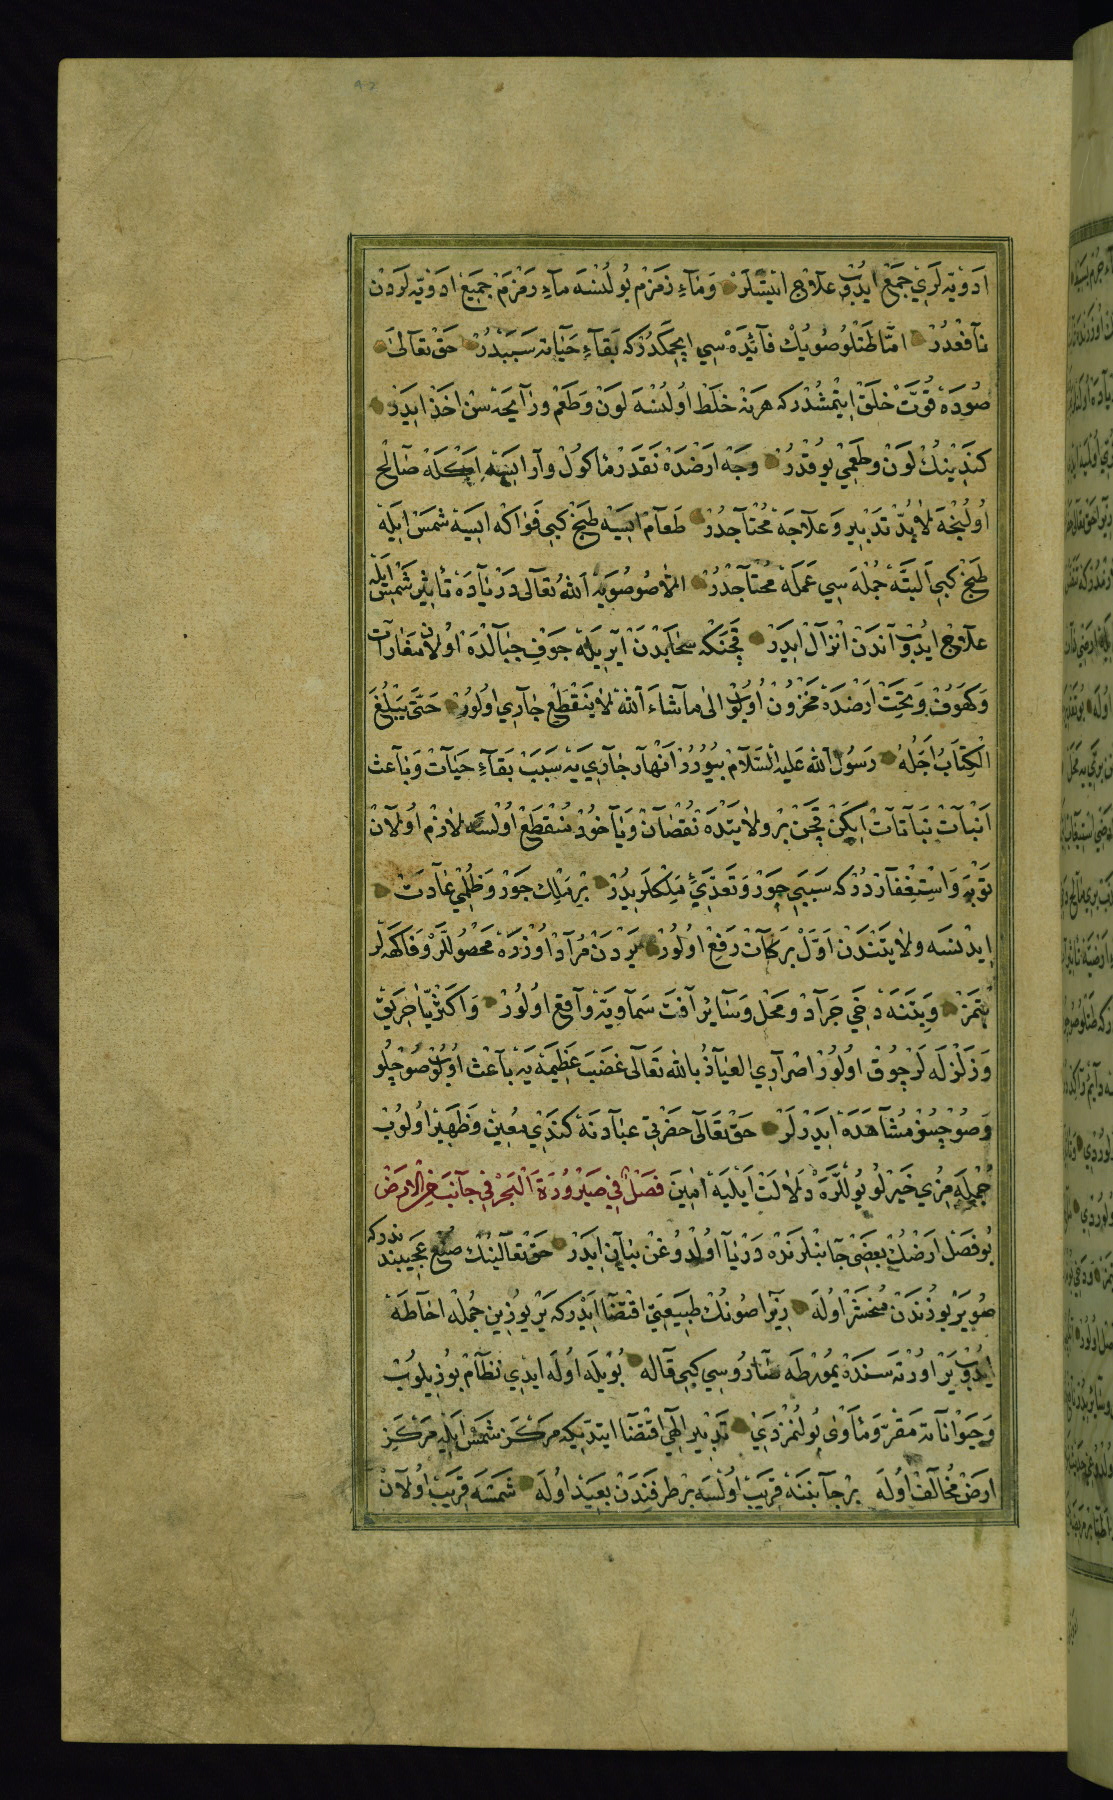 ادويه لري جمع ايدوب علاج ايتسلر وماء زمزم بولنسه ماء زمزم جميع ادويه لردن
نافعدر اما طتلو صويك فائده سي ايچمكدر كه بقاء حياته سببدر حق تعالى
صوده قوت خلق ايتمشدر كه هر نه خلط اولنسه لون وطعم ورايحه سن اخذ ايدر
كندينك لون وطعمي يوقدر وجه ارضده نقدر ماكول وار ايسه اكله صالح
اولنجه لابد تدبير وعلاجه محتاجدر طعام ايسه طبخ كبي فواكه ايسه شمس ايله
طبخ كبي البته جمله سي عمله محتاجدر الا صو صويه الله تعالى دريا ده تاثير شمس ايله
علاج ايدوب آندن انزال ايدر قچنكه سحابدن آيريله جوف جبالده اولان مغارات
وكهوف وتحت ارضده مخزون اولوب الى ما شاء الله لا ينقطع جاري اولور حتى يبلغ
الكتاب اجله رسول الله عليه السلام بيورر انهار جاري يه سبب بقاء حيات وباعث
انبات نباتات ايكن قچن بر ولايتده نقصان ويا خود منقطع اولسه لازم اولان
توبه واستغفاردر كه سببي جور وتعدي ملكلريدر بر ملك جور وظلمي عادت
ايدنسه ولايتندن اول بركات رفع اولور يردن مراد اوزره محصوللر وفاكهه لر
بتمز وبتنه دخي جراد ومحل وسائر آفت سماويه واقع اولور واكثريا حريق
وزلزله لر چوق اولور اصراري العياذ بالله تعالى غضب عظيمه يه باعث اولوب صوچلو
وصوچسز مشاهده ايدرلر حق تعالى حضرتي عبادنه كندي معين وظهير اولوب
جمله مزي خيرلو يوللره دلالت ايليه امين فصل في صيرورة البحر في جانب من الارض
بو فصل ارضك بعضي جانبلرنده دريا اولدوغن بيان ايدر حق تعالينك صنع عجيبندندركه
صو ير يوزندن منحسر اوله زيرا صونك طبيعتي اقتضا ايدر كه ير يوزين جمله احاطه
ايدوب ير اورته سنده يمورطه صاروسي كبي قاله بويله اوله ايدي نظام بوزيلوب
وحيواناته مقر ومأوى بولنمزدي تدبير الهي اقتضا ايتدي كه مركز شمس ايله مركز
ارض مخالف اوله بر جانبنه قريب اولسه بر طرفندن بعيد اوله شمسه قريب اولان